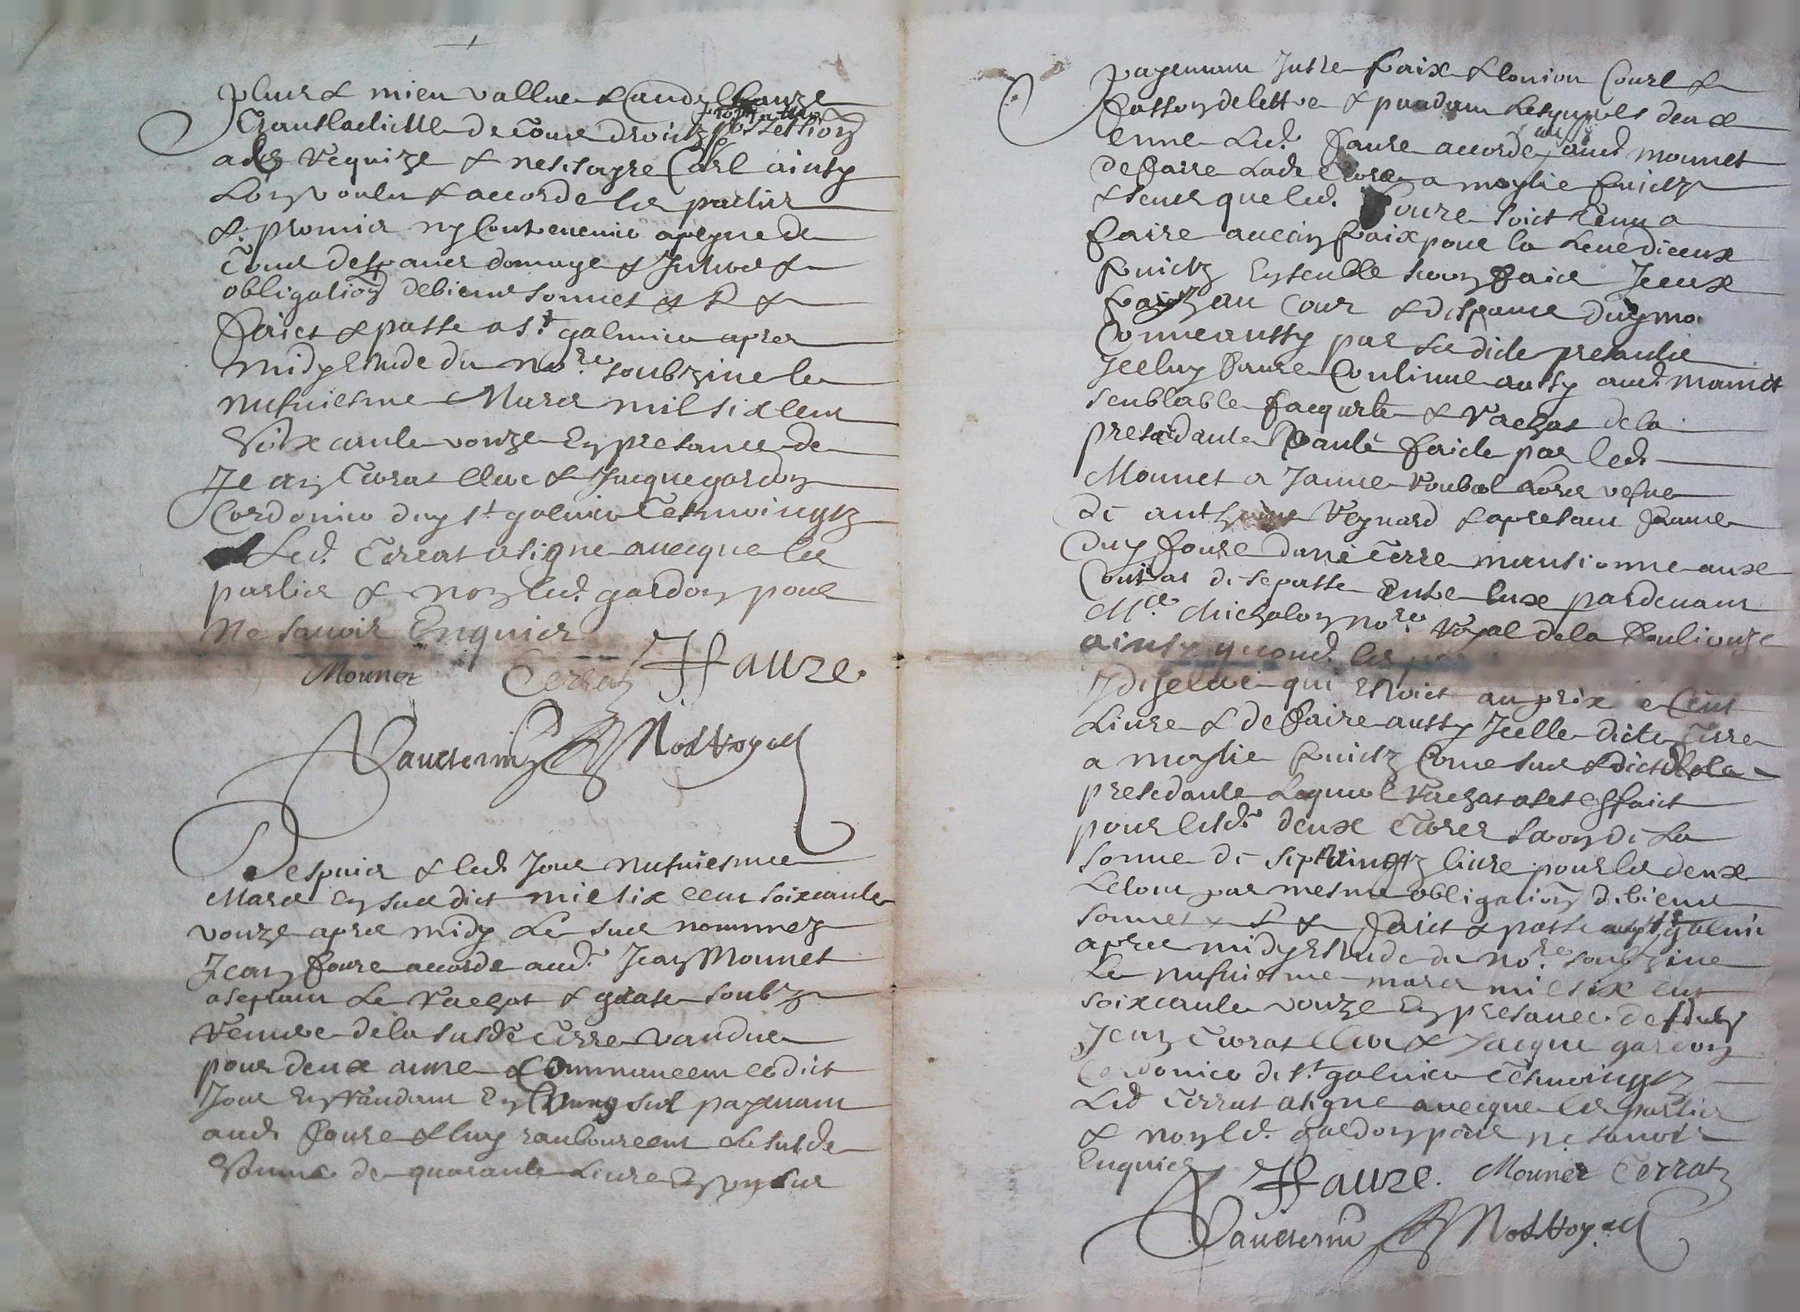 plus & mieu vallue & aud. Faure
translatielle de tous droictz possession
ades requize & nessesayre Car ainsy
Lon voulu & accorde les parties
& promis ny Contreuenir a peyne de
tous despans domage & Intherestz &
obligation de biens sonnet & R &
Faict & passe a St galmier apres
midy estude du no.re soubzine le
nufuiesme Mars mil six cens
Soixcante vonze En presance de
Jean terrat clerc & Jacque gardon
Cordonier duy St galmier tesmoingtz
Led. terrat a signe auecque les
parties & non led. gardon pour
ne sauoir Enquis
Mounet Terrat JFauze.
Not Royal
Despuis & led. Jour nufuiesme
Mars Cy sus dict mil six cens soixcante
vonze apres midy Le sus nommez
Jean Foure accorde aud. Jean Mounet
aseptant Le rachat & grace soubz
venue de la susde terre vandue
pour deux anne Commanceant cedict
Jour En randant En Comung sol payemant
aud. Faure & luy ranboursant La susde
Somme de quarante Liure En un sul
payemant Intre fraix & lonion Cours &
fasson de lettre & pandant Lesquels deux
anne Led. Faure accorde aud. mounet
de faire Lade terre a moytie fruictz
& sens que led. Foure soict tenu a
faire aucun fraix pour la Leue diceux
fruictz Ensenble sera faict Jceux
fraiz au cour & despance duy mo
Comme aussy par sa dicte presante
Jcelluy Faure Continue aussy aud. mounet
senblable facqurte & rachat de la
presedante vante faicte par led.
Mounet a Janne lors vefue
de anthoine Reynard & apresant fame
duy Foure dune terre mansionne aux
Contrat di se passe entre Eux pardeuant
M.re Michalon no.re Royal de la Foulliouze
ainsy quand. les
Jdiselue qui estoict au prix de Cent
Liure & de faire aussy Jcelle dicte terre
a moytie fruictz Come sus & dict de la
presedante Lequel rachat a set effaict
pour lesd. deux terres sauoy de La
somme de sept vingtz liure pour les deux
Le tout par mesme obligation de biens
sonnet & R & Faict & passe aud St galmier
apres midy estude du no.re soubzine
Le nufuiesme mars mil six cens
soixcante vonze En presance de sieurs
Jean terrat clerc & Jacque gardon
Cordonier de St galmier tesmoingtz
Led terrat a signe auecque les parties
& non led. gardon pour ne sauoir
Enquis JFauze. Mounet Terrat
Not Royal